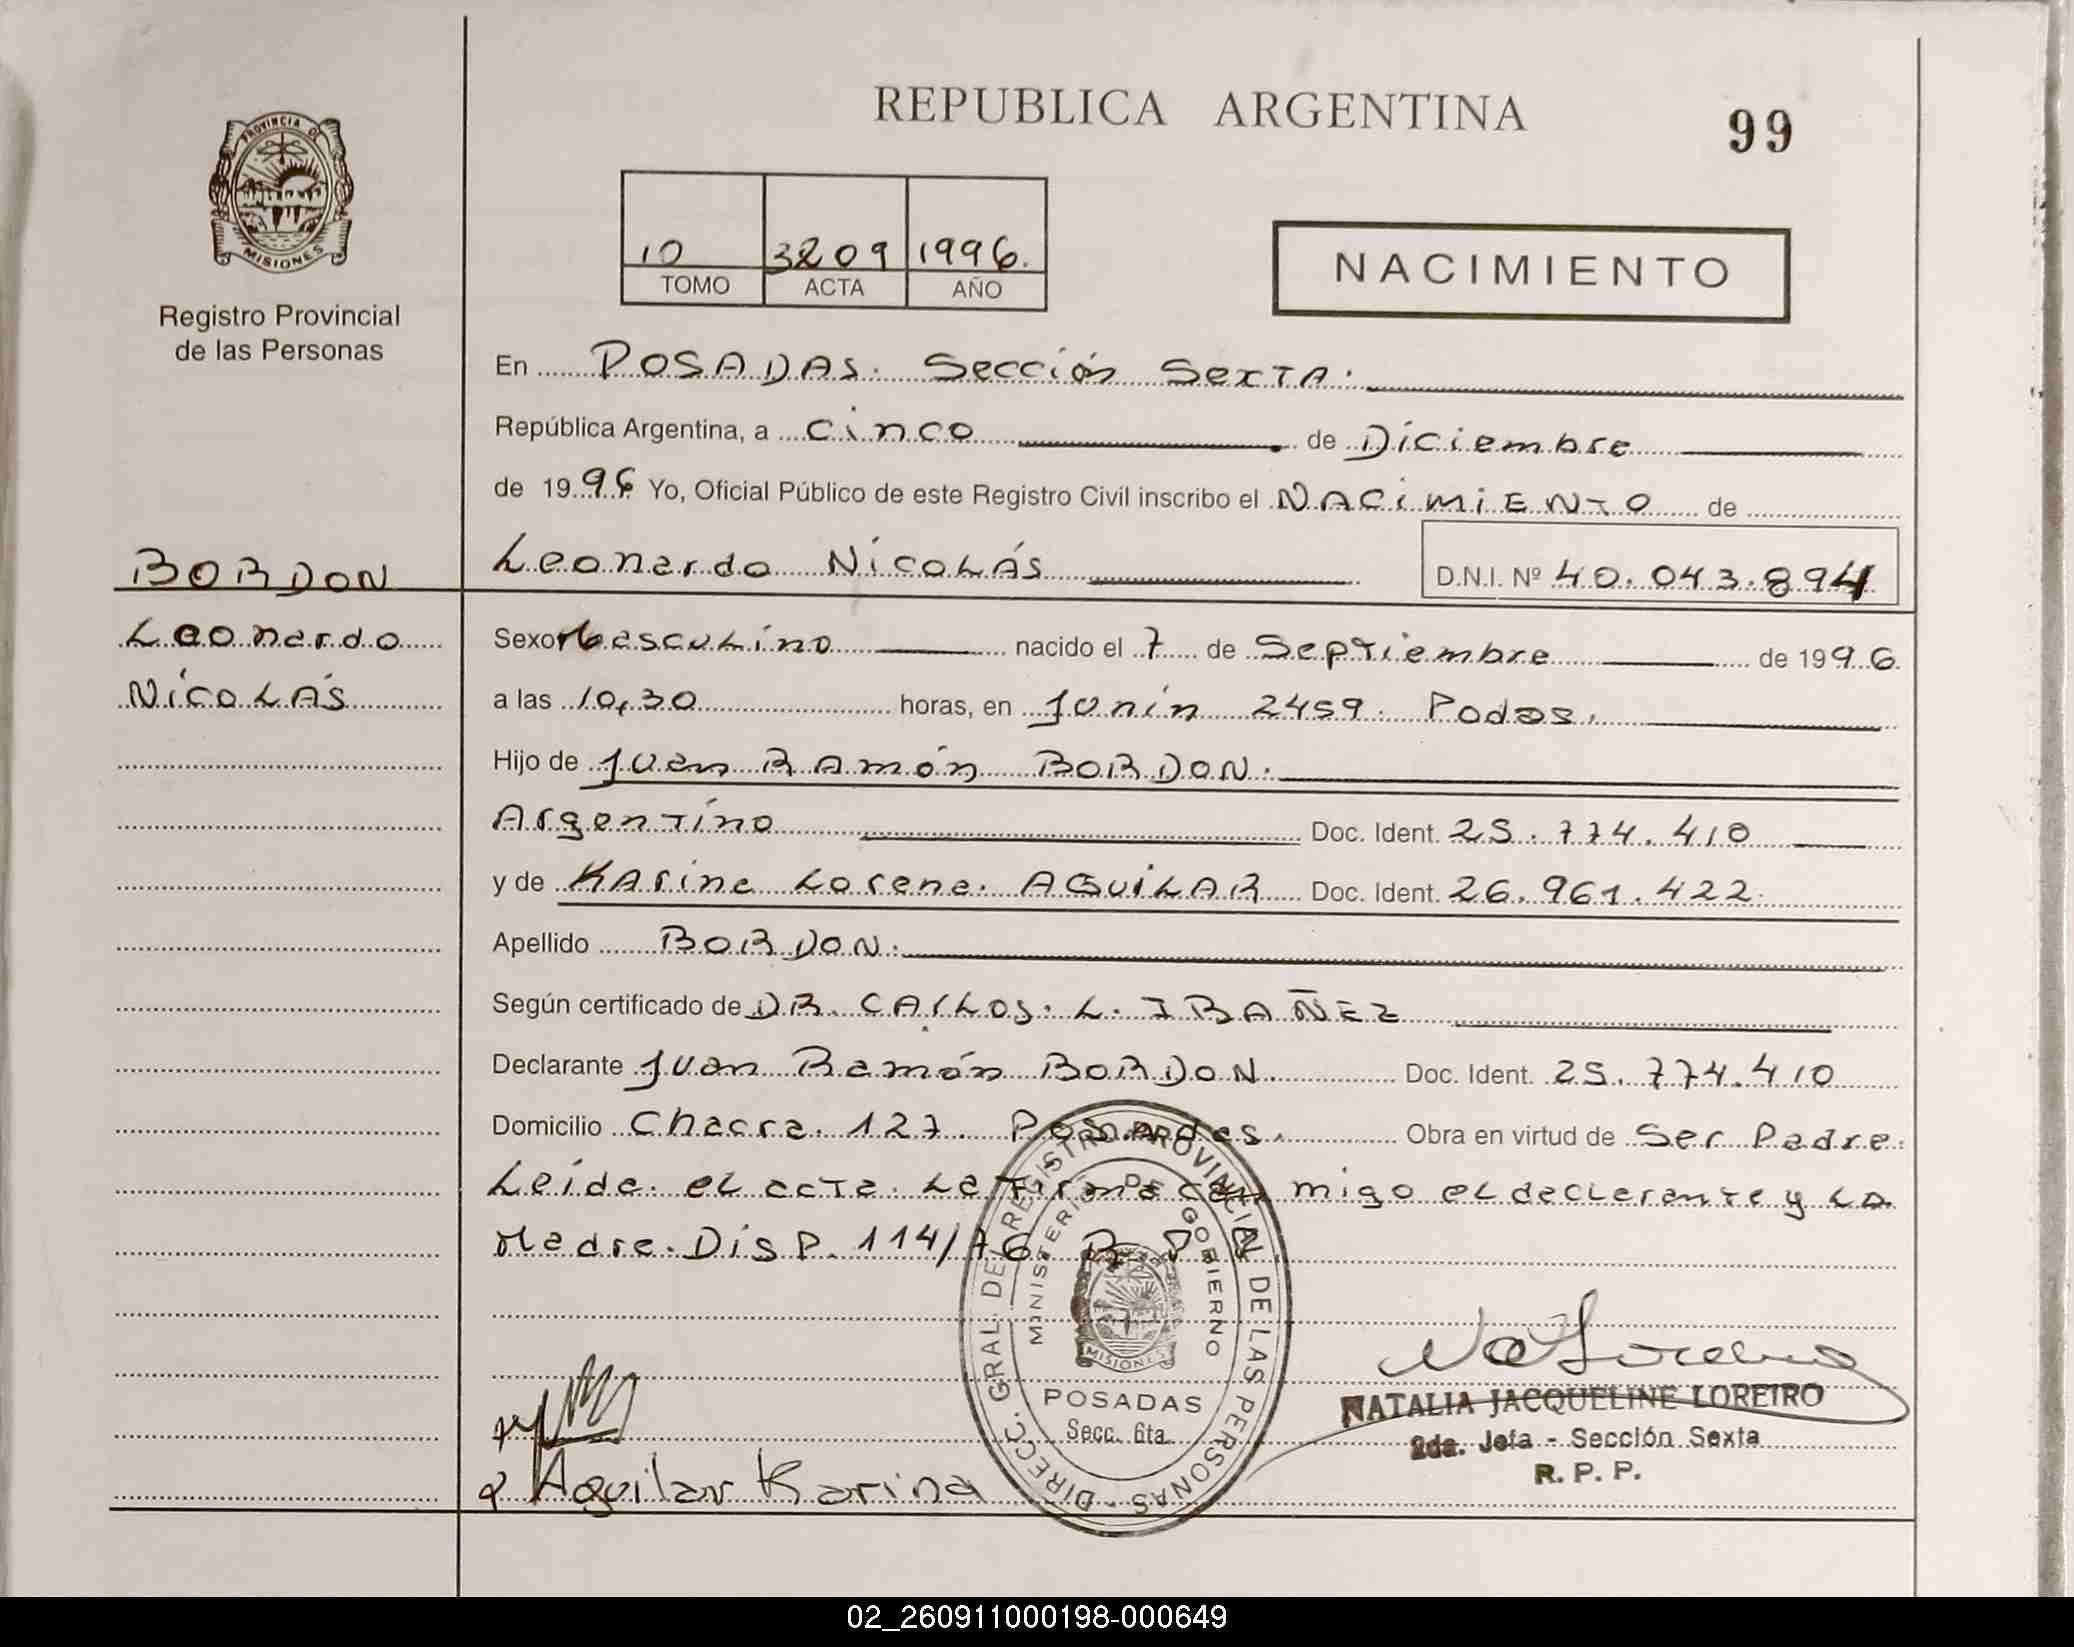 REPUBLICA ARGENTINA
99
PROVINCIA D
MISIONES
Registro Provincial
de las Personas
10 3209 1996.
TOMO ACTA AÑO
NACIMIENTO
En POSADAS. Sección Sexta.
República Argentina, a cinco de Diciembre
de 1996 Yo, Oficial Público de este Registro Civil inscribo el NACIMIENTO de
BORDON
Leonardo Nicolás D.N.I. Nº 40.043.894
Leonardo
Sexo Masculino nacido el 7 de Septiembre de 1996.
Nicolás
a las 10,30 horas, en Junín 2459. Podas.
Hijo de Juan Ramón BORDON.
Argentino Doc. Ident. 25.774.410
y de Karina Lorena. AGUILAR Doc. Ident. 26.961.422.
Apellido BORDON.
Según certificado de DR. CARLOS. L. IBAÑEZ
Declarante Juan Ramón BORDON. Doc. Ident. 25.774.410
Domicilio Chacra. 127. Posadas. Obra en virtud de Ser Padre.
Leida. el acta. La firma con migo el declarante y La
Madre. Disp. 114/76 R P P
DIRECC. GRAL. DEL REGISTRO PROVINCIAL DE LAS PERSONAS
MINISTERIO DE GOBIERNO
MISIONES
POSADAS
Secc. 6ta.
NATALIA JACQUELINE LOREIRO
2da. Jefa - Sección Sexta
R. P. P.
Aguilar Karina
02_260911000198-000649